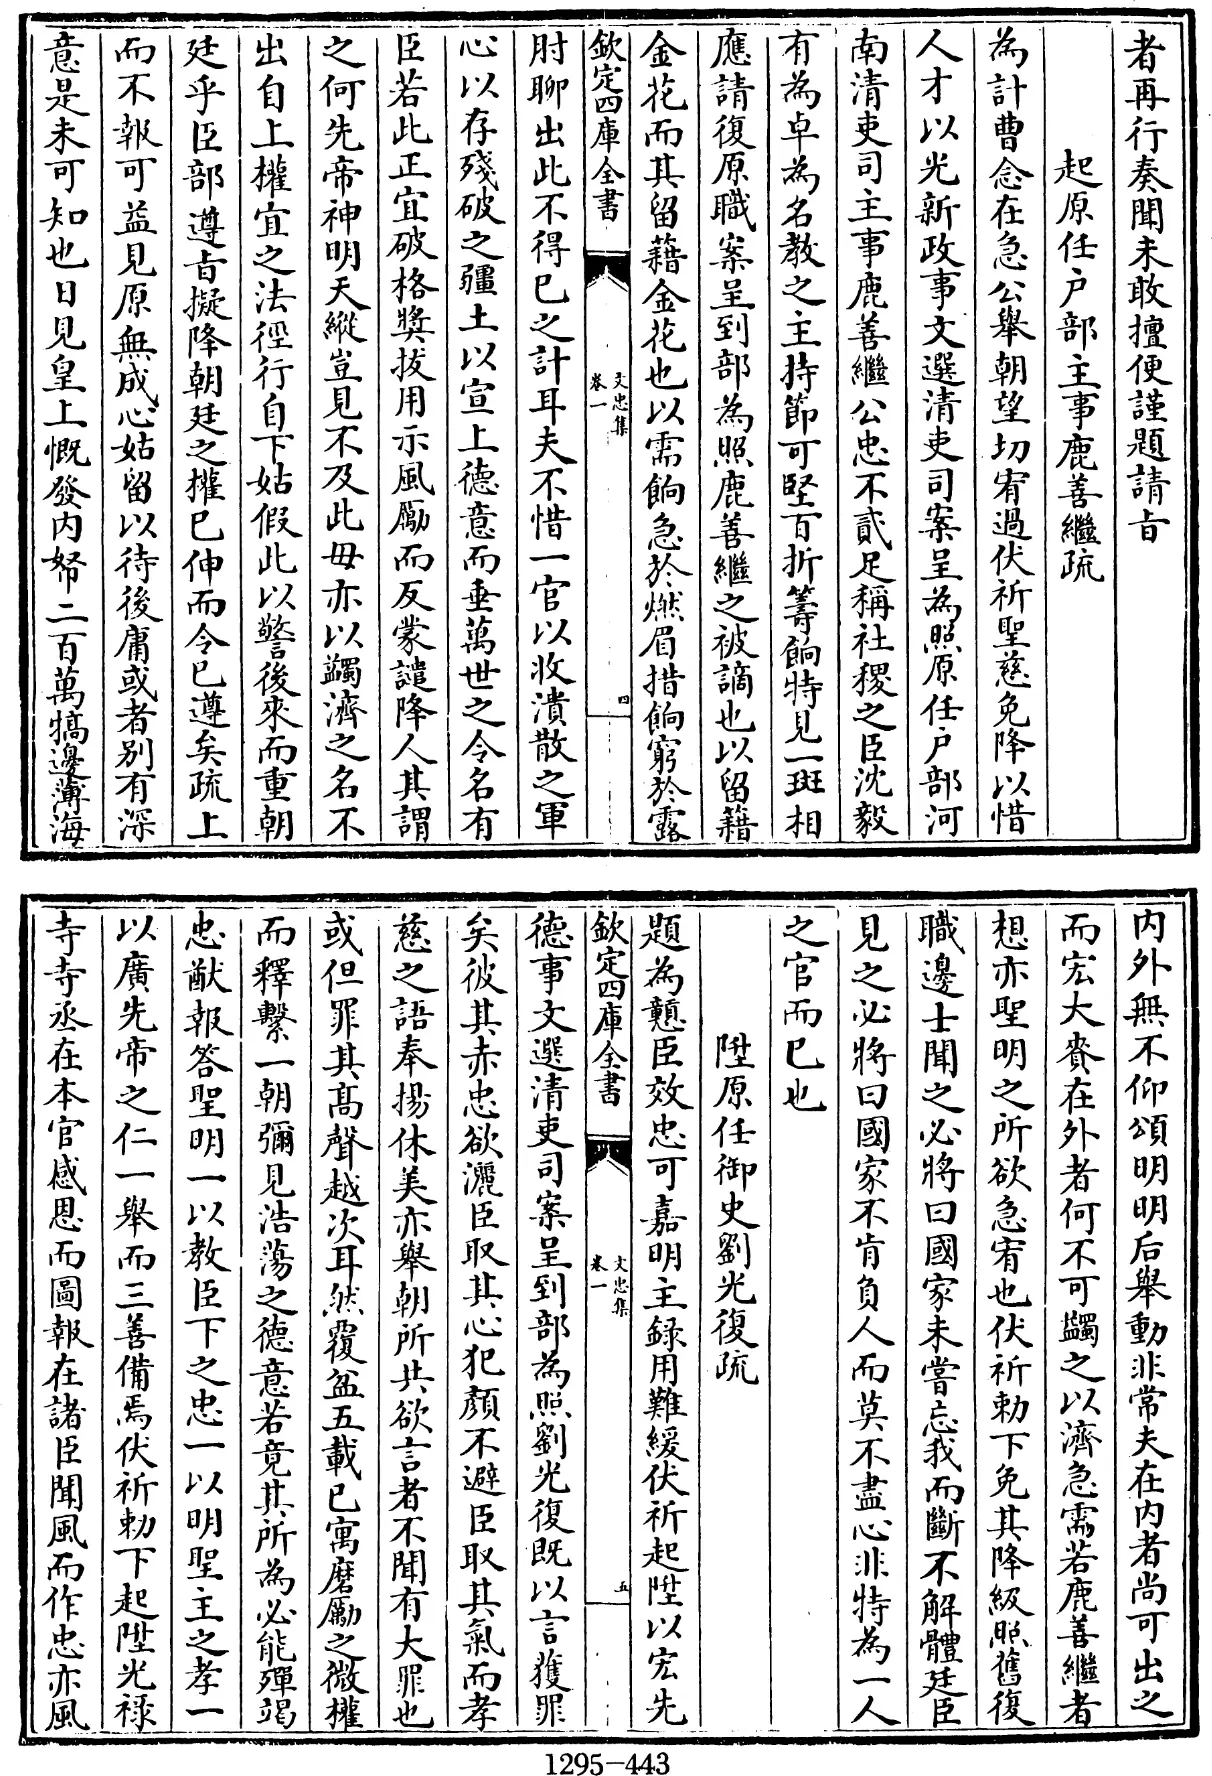 者再行奏聞未敢擅便謹題請㫖
起原任户部主事鹿善繼疏
為計曹念在急公舉朝望切宥過伏祈聖慈免降以惜
人才以光新政事文選清吏司案呈為照原任户部河
南清吏司主事鹿善繼公忠不貳足稱社稷之臣沈毅
有為卓為名教之主持節可堅百折籌餉特見一斑相
應請復原職案呈到部為照鹿善繼之被謫也以留籍
金花而其留藉金花也以需餉急於燃眉措餉窮於露
欽定四庫全書
文忠集
卷一
四
肘聊出此不得已之計耳夫不惜一官以收潰散之軍
心以存殘破之疆土以宣上德意而垂萬世之令名有
臣若此正宜破格奬拔用示風勵而反蒙譴降人其謂
之何先帝神明天縱豈見不及此毋亦以蠲濟之名不
出自上權宜之法徑行自下姑假此以警後來而重朝
廷乎臣部遵㫖擬降朝廷之權已伸而令已遵矣疏上
而不報可益見原無成心姑留以待後庸或者别有深
意是未可知也日見皇上慨發内帑二百萬犒邊薄海
内外無不仰頌明明后舉動非常夫在内者尚可出之
而宏大賚在外者何不可蠲之以濟急需若鹿善繼者
想亦聖明之所欲急宥也伏祈勅下免其降級照舊復
職邊士聞之必將曰國家未嘗忘我而斷不解體廷臣
見之必將曰國家不肯負人而莫不盡心非特為一人
之官而已也
陞原任御史劉光復疏
題為戇臣效忠可嘉明主録用難緩伏祈起陞以宏先
欽定四庫全書
文忠集
卷一
五
德事文選清吏司案呈到部為照劉光復既以言獲罪
矣彼其赤忠欲灑臣取其心犯顔不避臣取其氣而孝
慈之語奉揚休美亦舉朝所共欲言者不聞有大罪也
或但罪其髙聲越次耳然覆盆五載已寓磨勵之微權
而釋繫一朝彌見浩蕩之德意若竟其所為必能殫竭
忠猷報答聖明一以教臣下之忠一以明聖主之孝一
以廣先帝之仁一舉而三善備焉伏祈勅下起陞光禄
寺寺丞在本官感恩而圖報在諸臣聞風而作忠亦風
1295-443